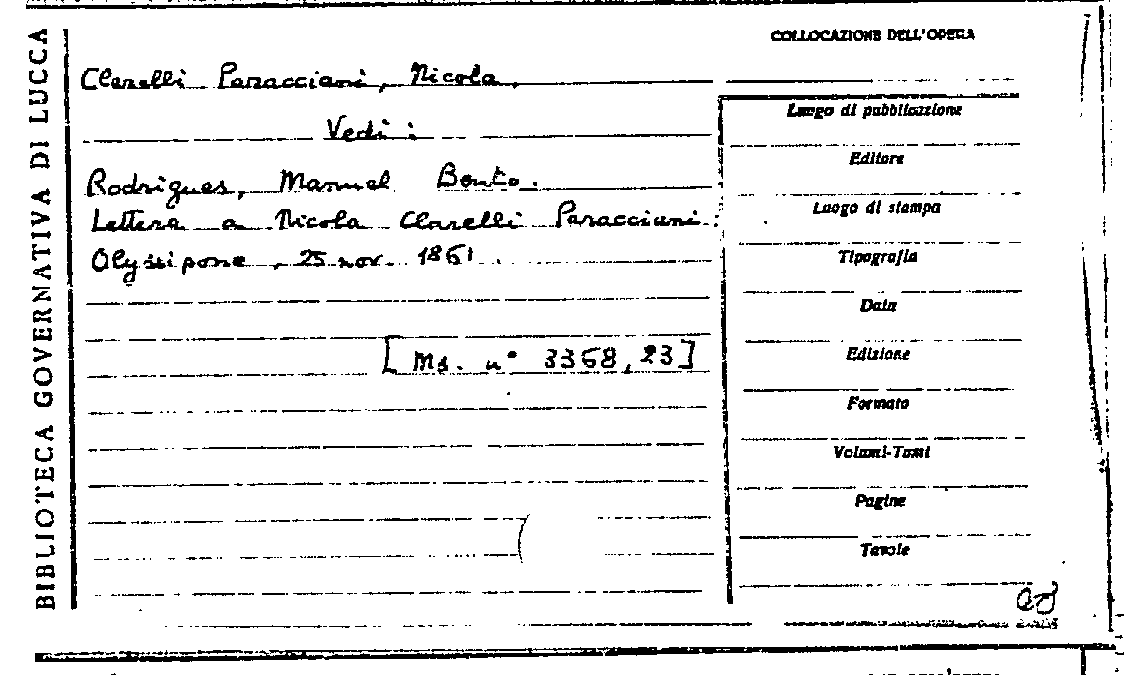 BIBLIOTECA GOVERNATIVA DI LUCCA
COLLOCAZIONE DELL'OPERA
Clarelli Paracciani, Nicola.
Vedi:
Rodrigues, Manuel Bento.
Lettera a Nicola Clarelli Paracciani:
Olyssipone, 25 nov. 1861.
[Ms. n° 3368, 23]
Luogo di pubblicazione
Editore
Luogo di stampa
Tipografia
Data
Edizione
Formato
Volumi-Tomi
Pagine
Tavole